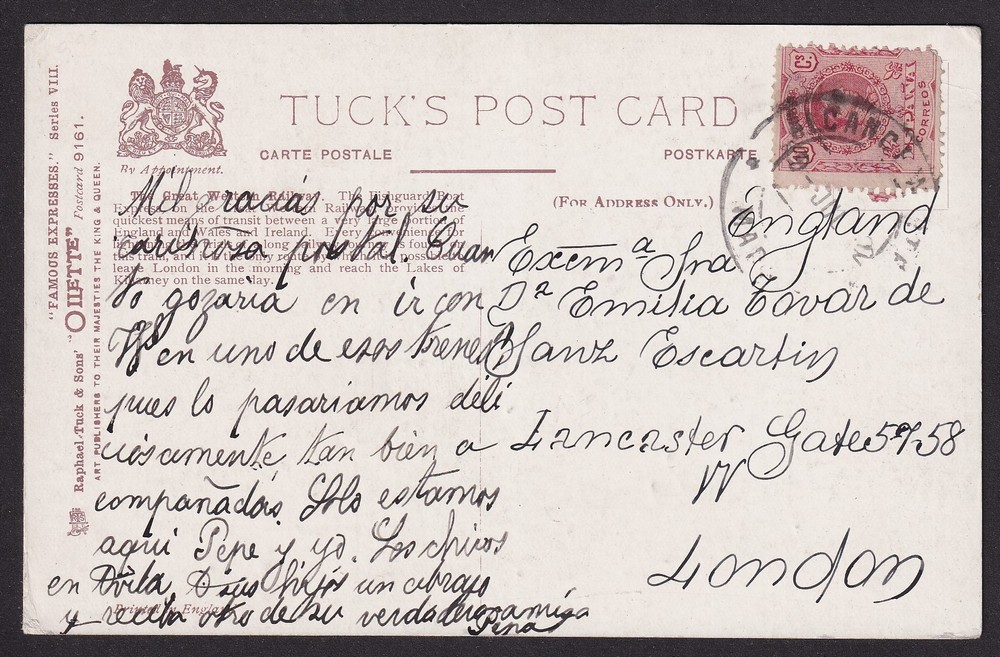 "FAMOUS EXPRESSES." Series VIII.
Raphael Tuck & Sons' "OILETTE" Postcard 9161.
ART PUBLISHERS TO THEIR MAJESTIES THE KING & QUEEN.
By Appointment.
TUCK'S POST CARD
CARTE POSTALE
POSTKARTE
(FOR ADDRESS ONLY.)
CORREOS
10 Cs
The Great Western Railway. The Fishguard Boat
Express on the Great Western Railway is the
quickest means of transit between a very large portion of
England and Wales and Ireland. Every convenience for
long railway is found on
this train, and it is the only which it is possible to
leave London in the morning and reach the Lakes of
Killarney on the same day.
Mil gracias por su
cariñosa postal. Cuan
to gozaria en ir con
Vs en uno de esos trenes
pues lo pasariamos deli
ciosamente tan bien a
compañadas. Solo estamos
aqui Pepe y yo. Los chicos
en Avila, a sus hijos un abrazo
y reciba otro de su verdadera amiga
Pepa
Printed in England
England
Excmª Sra
Dª Emilia Tovar de
Sanz Escartin
Lancaster Gate 57.58
W
London